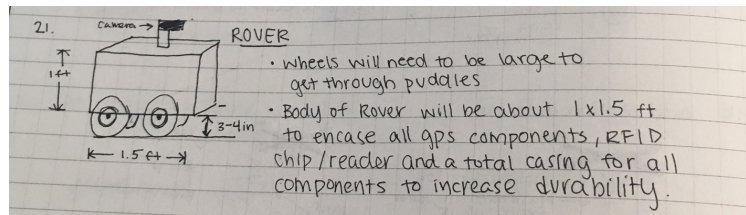 21.
Camera →
ROVER
• wheels will need to be large to
get through puddles
1ft
• Body of Rover will be about 1x1.5 ft
3-4in
to encase all gps components, RFID
1.5 ft
chip/reader and a total casing for all
components to increase durability.